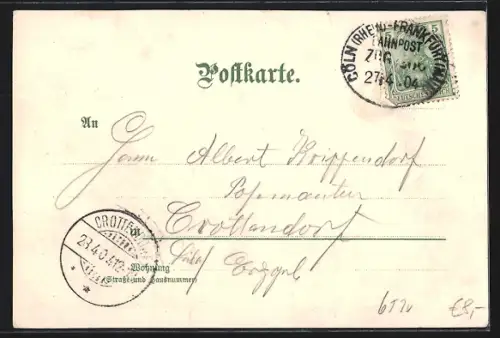 CÖLN (RHEIN)-FRANKFURT (MAIN)
BAHNPOST
ZUG
27.4.04
5
Postkarte.
An
Herrn Albert Krippendorf
Posamentier
Crottendorf
in
Erzgeb.
Wohnung
(Straße und Hausnummer)
CROTTENDORF
28.4.04.12
€8,-